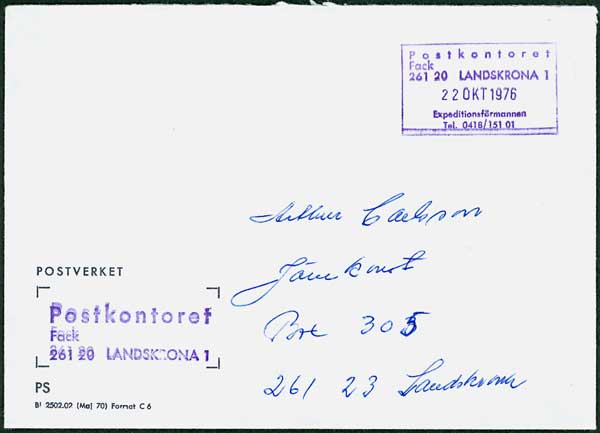 Postkontoret
Fack
261 20 LANDSKRONA 1
22 OKT 1976
Expeditionsförmannen
Tel. 0418/151 01
Arthur Carlsson
Järnkonst
Box 305
261 23 Landskrona
POSTVERKET
Postkontoret
Fack
261 20 LANDSKRONA 1
PS
Bl 2502.02 (Maj 70) Format C 6